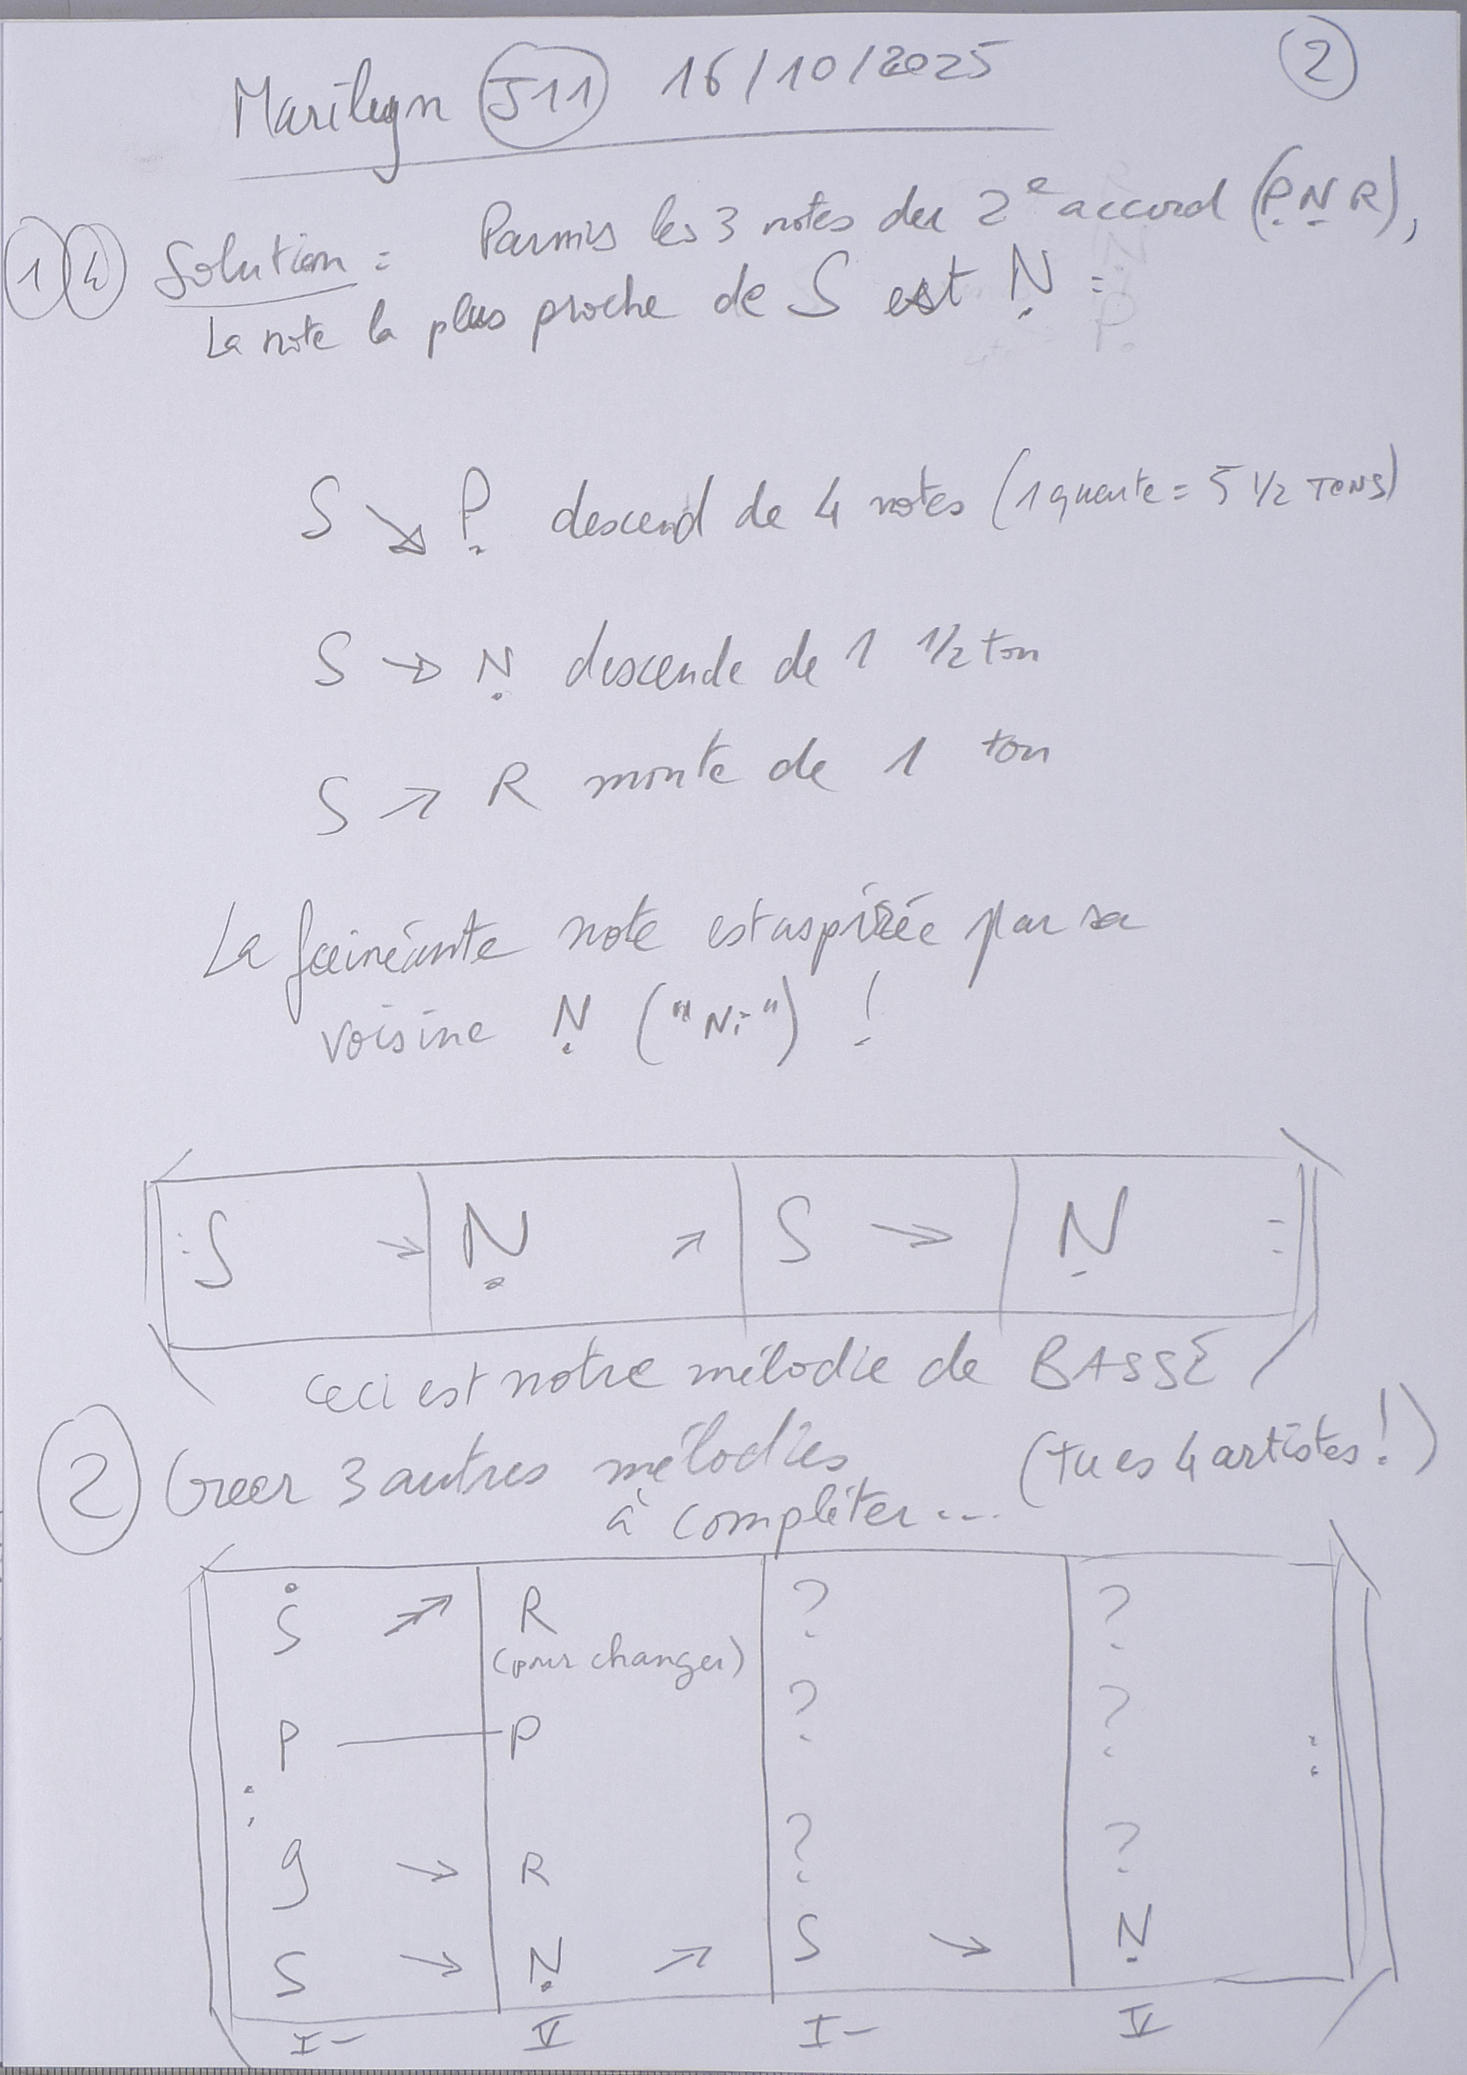 Marilyn J11 16/10/2025 2
1 4 Solution : Parmis les 3 notes du 2e accord (Ṗ Ṇ R),
La note la plus proche de S est Ṇ :
S ↘ P̣ descend de 4 notes (1 quarte = 5 1/2 TONS)
S → Ṇ descende de 1 1/2 ton
S ↗ R monte de 1 ton
La fainéante note est aspirée par sa
voisine Ṇ ("Ni") !
: S → | Ṇ ↗ | S → | Ṇ :
Ceci est notre mélodie de BASSE
2 Creer 3 autres mélodies (tu es 4 artistes !)
à compléter...
Ṡ ↗ R ? ?
(pour changer)
P — P ? ?
: :
g → R ? ?
S → Ṇ ↗ S → Ṇ
I- V I- V